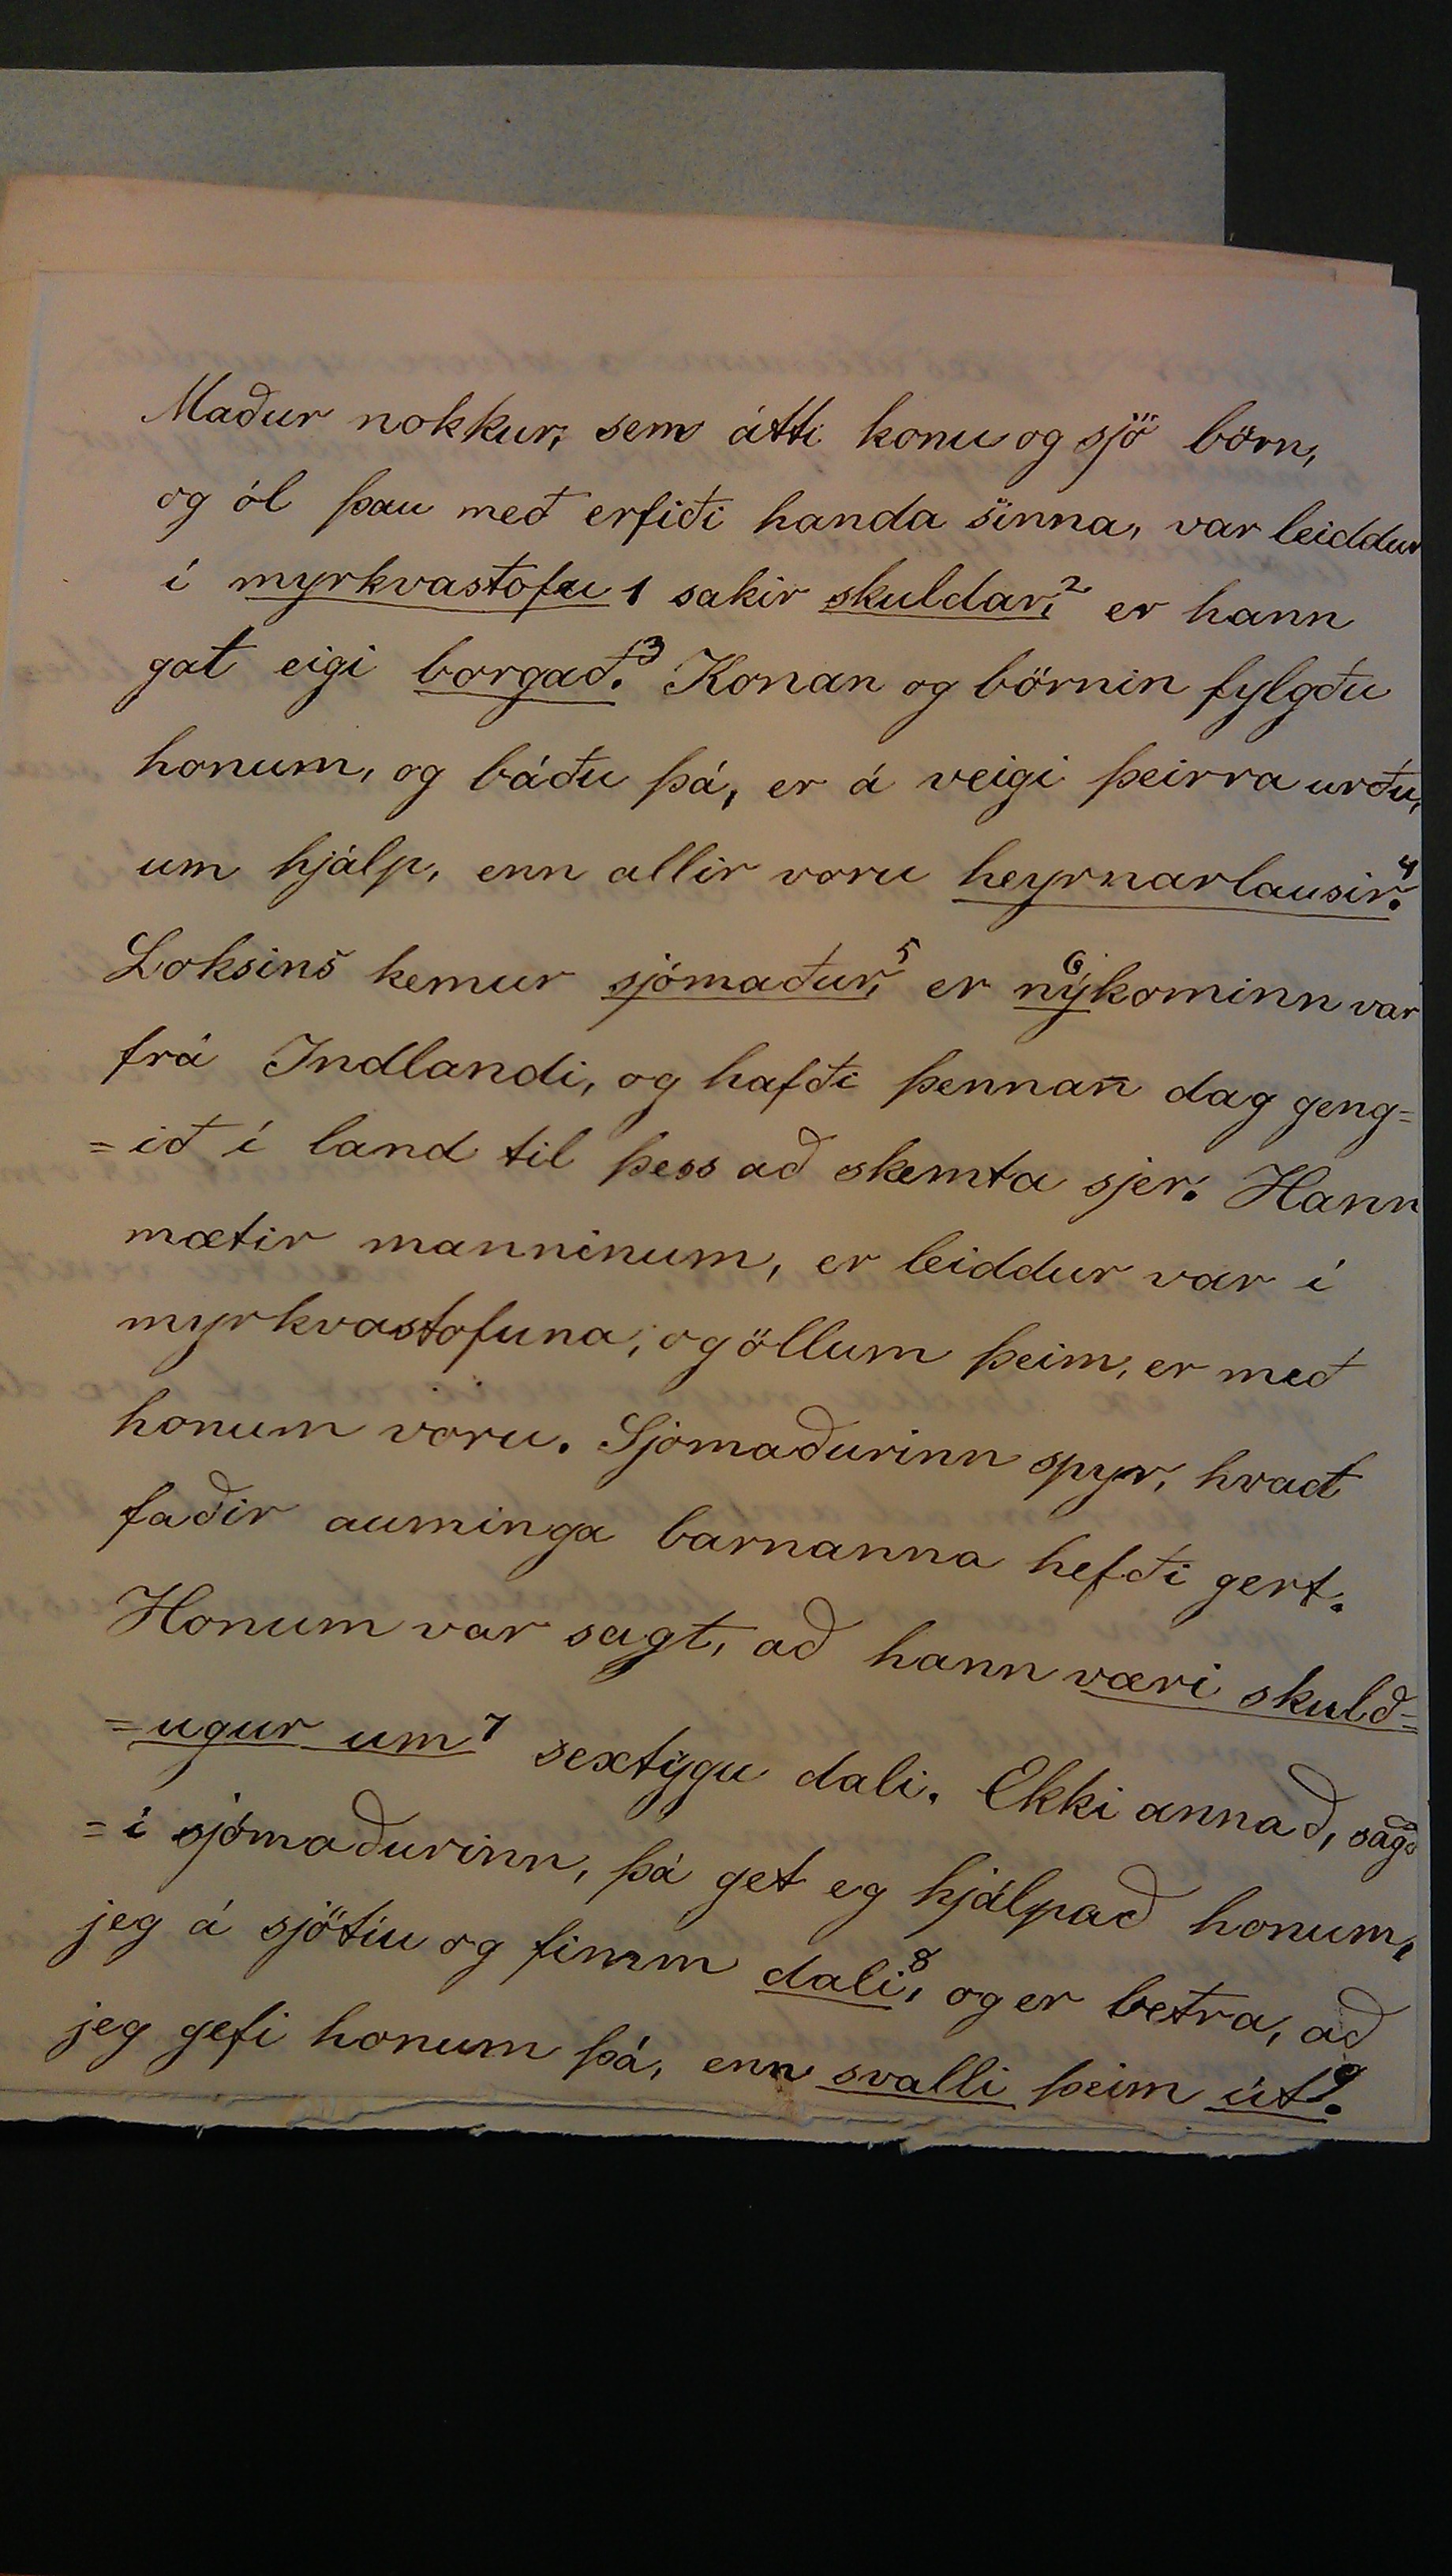 Maður nokkur, sem átti konu og sjö börn,
og ól þau með erfiði handa sinna, var leiddur
í myrkvastofu 1 sakir skuldar,2 er hann
gat eigi borgað.3 Konan og börnin fylgðu
honum, og báðu þá, er á veigi þeirra urðu,
um hjálp, enn allir voru heyrnarlausir.4
Loksins kemur sjómaður,5 er ný6kominn var
frá Indlandi, og hafði þennan dag geng=
=ið í land til þess að skemta sjer. Hann
mætir manninum, er leiddur var í
myrkvastofuna, og öllum þeim, er með
honum voru. Sjomaðurinn spyr, hvað
faðir auminga barnanna hefði gert.
Honum var sagt, að hann væri skuld=
=ugur um7 sextygu dali. Ekki annað, sagð
=i sjómaðurinn, þá get eg hjálpað honum,
jeg á sjötíu og fimm dali,8 og er betra, að
jeg gefi honum þá, enn svalli þeim út.9